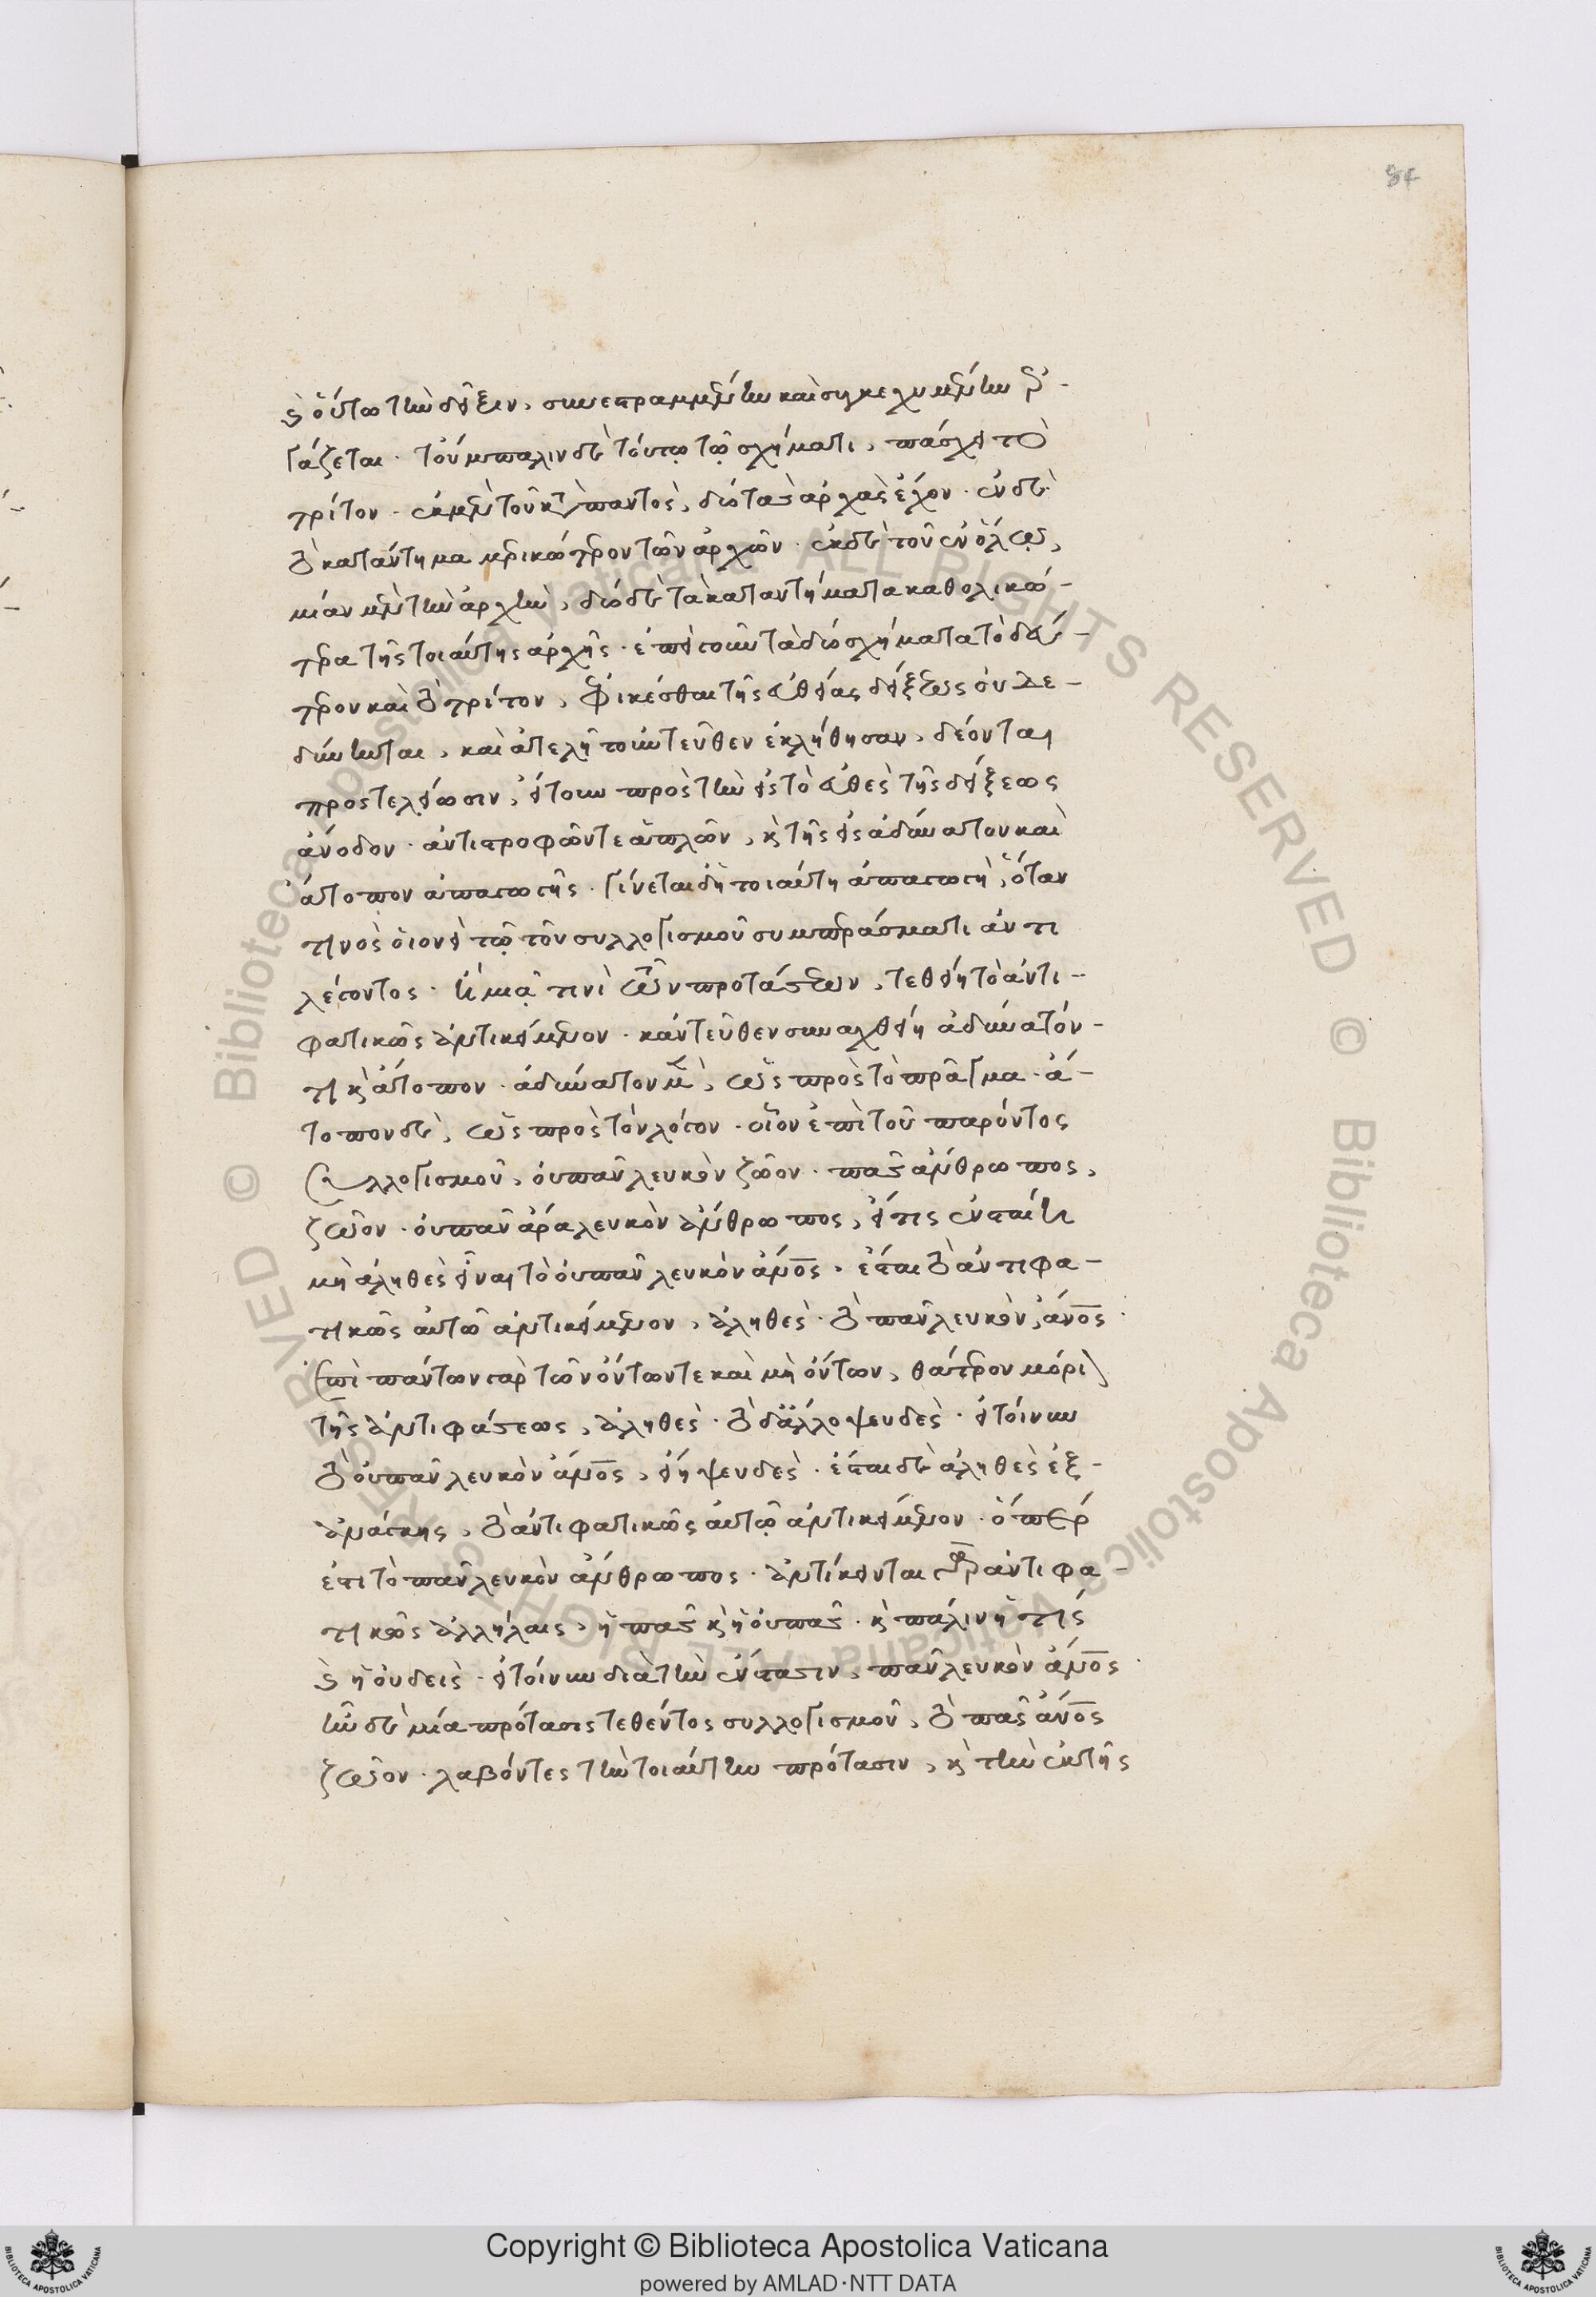 84
καὶ οὕτω τὴν δεῖξιν, συνεστραμμένην καὶ συγκεχυμένην ἐρ-
γάζεται· τοὔμπαλιν δὲ τούτῳ τῷ σχήματι, πάσχει τὸ
τρίτον· ἐκ μὲν τοῦ κατὰ παντὸς, δύο τὰς ἀρχὰς ἔχον· ἓν δὲ
τὸ κατάντημα μερικώτερον τῶν ἀρχῶν· ἐκ δὲ τοῦ ἐν ὅλῳ,
μίαν μὲν τὴν ἀρχὴν, δύο δὲ τὰ καταντήματα καθολικώ-
τερα τῆς τοιαύτης ἀρχῆς· ἐπεὶ γοῦν τὰ δύο σχήματα τὸ δεύ-
τερον καὶ τὸ τρίτον, ἐφικέσθαι τῆς εὐθείας δείξεως οὐ δε-
δύνηνται, καὶ ἀτελῆ τοὐντεῦθεν ἐκλήθησαν, δέονται
πρὸς τελείωσιν, ἤτοι πρὸς τὴν εἰς τὸ εὐθὲς τῆς δείξεως
ἄνοδον· ἀντιστροφῶν τε ἁπλῶν, καὶ τῆς εἰς ἀδύνατον καὶ
ἄτοπον ἀπαγωγῆς· γίνεται δὴ τοιαύτη ἀπαγωγὴ, ὅταν
τινὸς οἱονεὶ τῷ τοῦ συλλογισμοῦ συμπεράσματι ἀντι
λέγοντος· ἢ μιᾷ τινὶ τῶν προτάσεων, τεθείη τὸ ἀντι-
φατικῶς ἀντικείμενον· κἀντεῦθεν συναχθείη ἀδύνατόν-
τι καὶ ἄτοπον· ἀδύνατον μὲν, ὡς πρὸς τὸ πρᾶγμα· ἄ-
τοπον δὲ, ὡς πρὸς τὸν λόγον· οἷον ἐπὶ τοῦ παρόντος
συλλογισμοῦ, οὐ πᾶν λευκὸν ζῶον· πᾶς ἄνθρωπος,
ζῶον· οὐ πᾶν ἄρα λευκὸν ἄνθρωπος, εἴ τις ἐνσταίη
μὴ ἀληθὲς εἶναι τὸ οὐ πᾶν λευκὸν ἄνος, ἔσται τὸ ἀντιφα-
τικῶς αὐτῷ ἀντικείμενον, ἀληθὲς· τὸ πᾶν λευκὸν, ἄνος
ἐπὶ πάντων γὰρ τῶν ὄντων τε καὶ μὴ ὄντων, θάτερον μόρι
τῆς ἀντιφάσεως, ἀληθὲς· τὸ δ' ἄλλο ψευδὲς· εἰ τοίνυν
τὸ οὐ πᾶν λευκὸν ἄνος, εἴη ψευδὲς· ἔσται δὲ ἀληθὲς ἐξ-
ἀνάγκης, τὸ ἀντιφατικῶς αὐτῷ ἀντικείμενον· ὅπερ
ἐστὶ τὸ πᾶν λευκὸν ἄνθρωπος· ἀντίκεινται γὰρ ἀντιφα-
τικῶς ἀλλήλαις, ἡ πᾶς καὶ ἡ οὐ πᾶς· καὶ πάλιν ἡ τίς
καὶ ἡ οὐδεὶς· εἰ τοίνυν διὰ τὴν ἔνστασιν, πᾶν λευκὸν ἄνος
ἦν δὲ μία πρότασις τεθέντος συλλογισμοῦ, τὸ πᾶς ἄνος
ζῶον· λαβόντες τὴν τοιαύτην πρότασιν, καὶ τὴν ἐκ τῆς